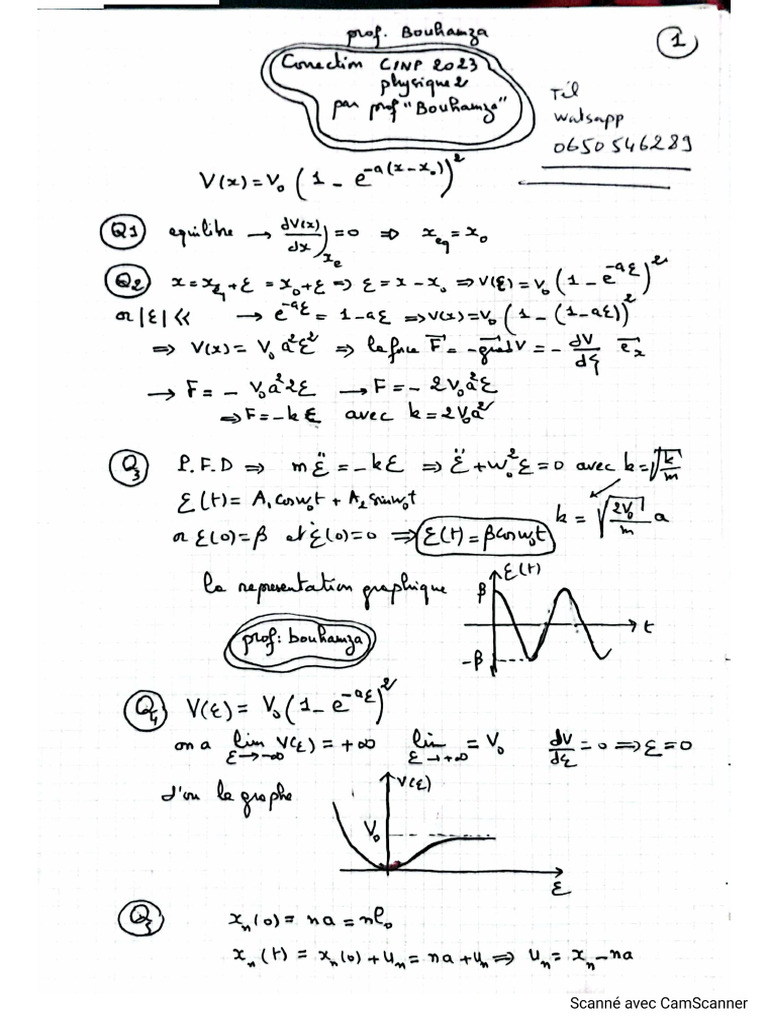 prof. Bouhamza
1
Correction CINP 2023
physique 2
par prof "Bouhamza"
Tél
Watsapp
0650546289
V(x) = V₀ (1 - e^{-a(x-x₀)})²
Q1 equilibre → dV(x)/dx)_{x_e} = 0 ⇒ x_eq = x₀
Q2 x = x_eq + ε = x₀ + ε ⇒ ε = x - x₀ ⇒ V(ε) = V₀ (1 - e^{-aε})²
or |ε| ≪ → e^{-aε} = 1 - aε ⇒ V(x) = V₀ (1 - (1 - aε))²
⇒ V(x) = V₀ a² ε² ⇒ la force F⃗ = - grad⃗ V = - dV/dξ e⃗_x
→ F = - V₀ a² 2ε → F = - 2V₀ a² ε
⇒ F = -kε avec k = 2V₀a²
Q3 P.F.D ⇒ m ε̈ = -kε ⇒ ε̈ + w₀² ε = 0 avec k = √(k/m)
ε(t) = A₁ cosw₀t + A₂ sinw₀t
k = √(2V₀/m) a
or ε(0) = β et ε̇(0) = 0 ⇒ ε(t) = β cosw₀t
la representation graphique
β
ε(t)
t
-β
prof: bouhamza
Q4 V(ε) = V₀ (1 - e^{-aε})²
on a lim_{ε→-∞} V(ε) = +∞ lim_{ε→+∞} = V₀ dV/dε = 0 ⇒ ε = 0
d'ou la graphe
V(ε)
V₀
ε
Q5 x_n(0) = na = nl₀
x_n(t) = x_n(0) + u_n = na + u_n ⇒ u_n = x_n - na
Scanné avec CamScanner